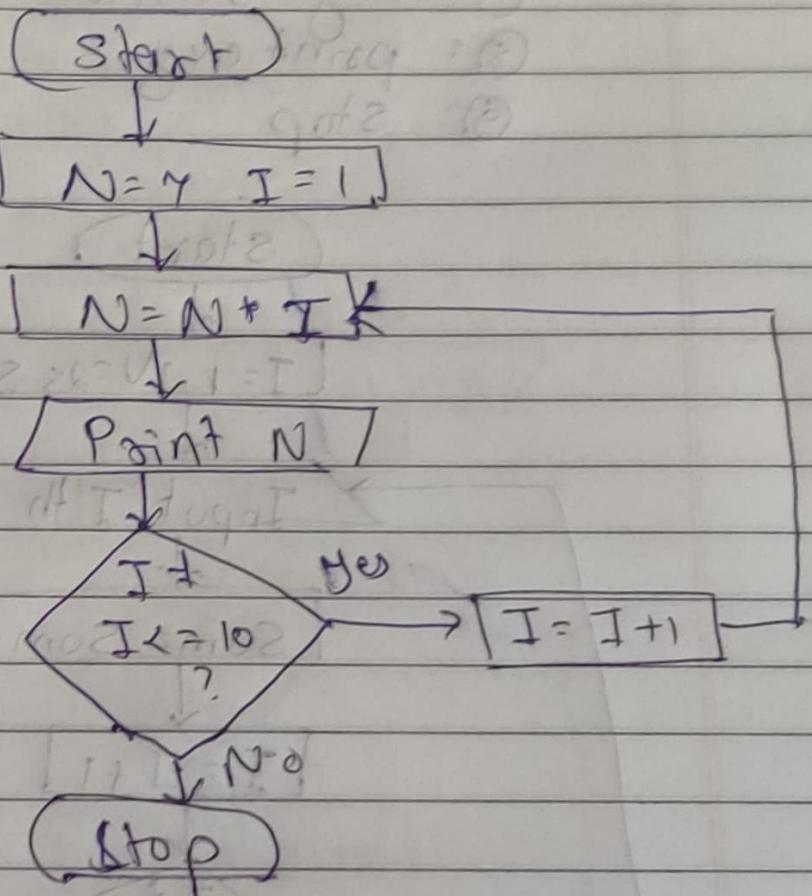 Start
N=7 I=1
N=N*I
Print N
If
Yes
I<=10
I=I+1
?
No
Stop